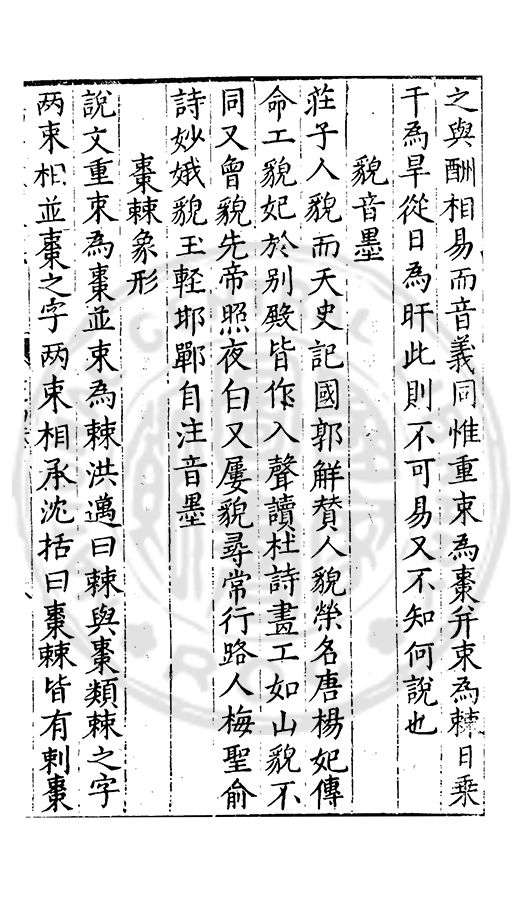 之與酬相易而音義同惟重束為棗并束為棘日乗
干為旱從日為旰此則不可易又不知何說也
貌音墨
莊子人貌而天史記國郭解賛人貌榮名唐楊妃傳
命工貌妃於别殿皆作入聲讀杜詩畫工如山貌不
同又曾貌先帝照夜白又屢貌尋常行路人梅聖俞
詩妙娥貌玉軽邯鄲自注音墨
棗棘象形
說文重束為棗並束為棘洪邁曰棘與棗類棘之字
两束相並棗之字两束相承沈括曰棗棘皆有刺棗